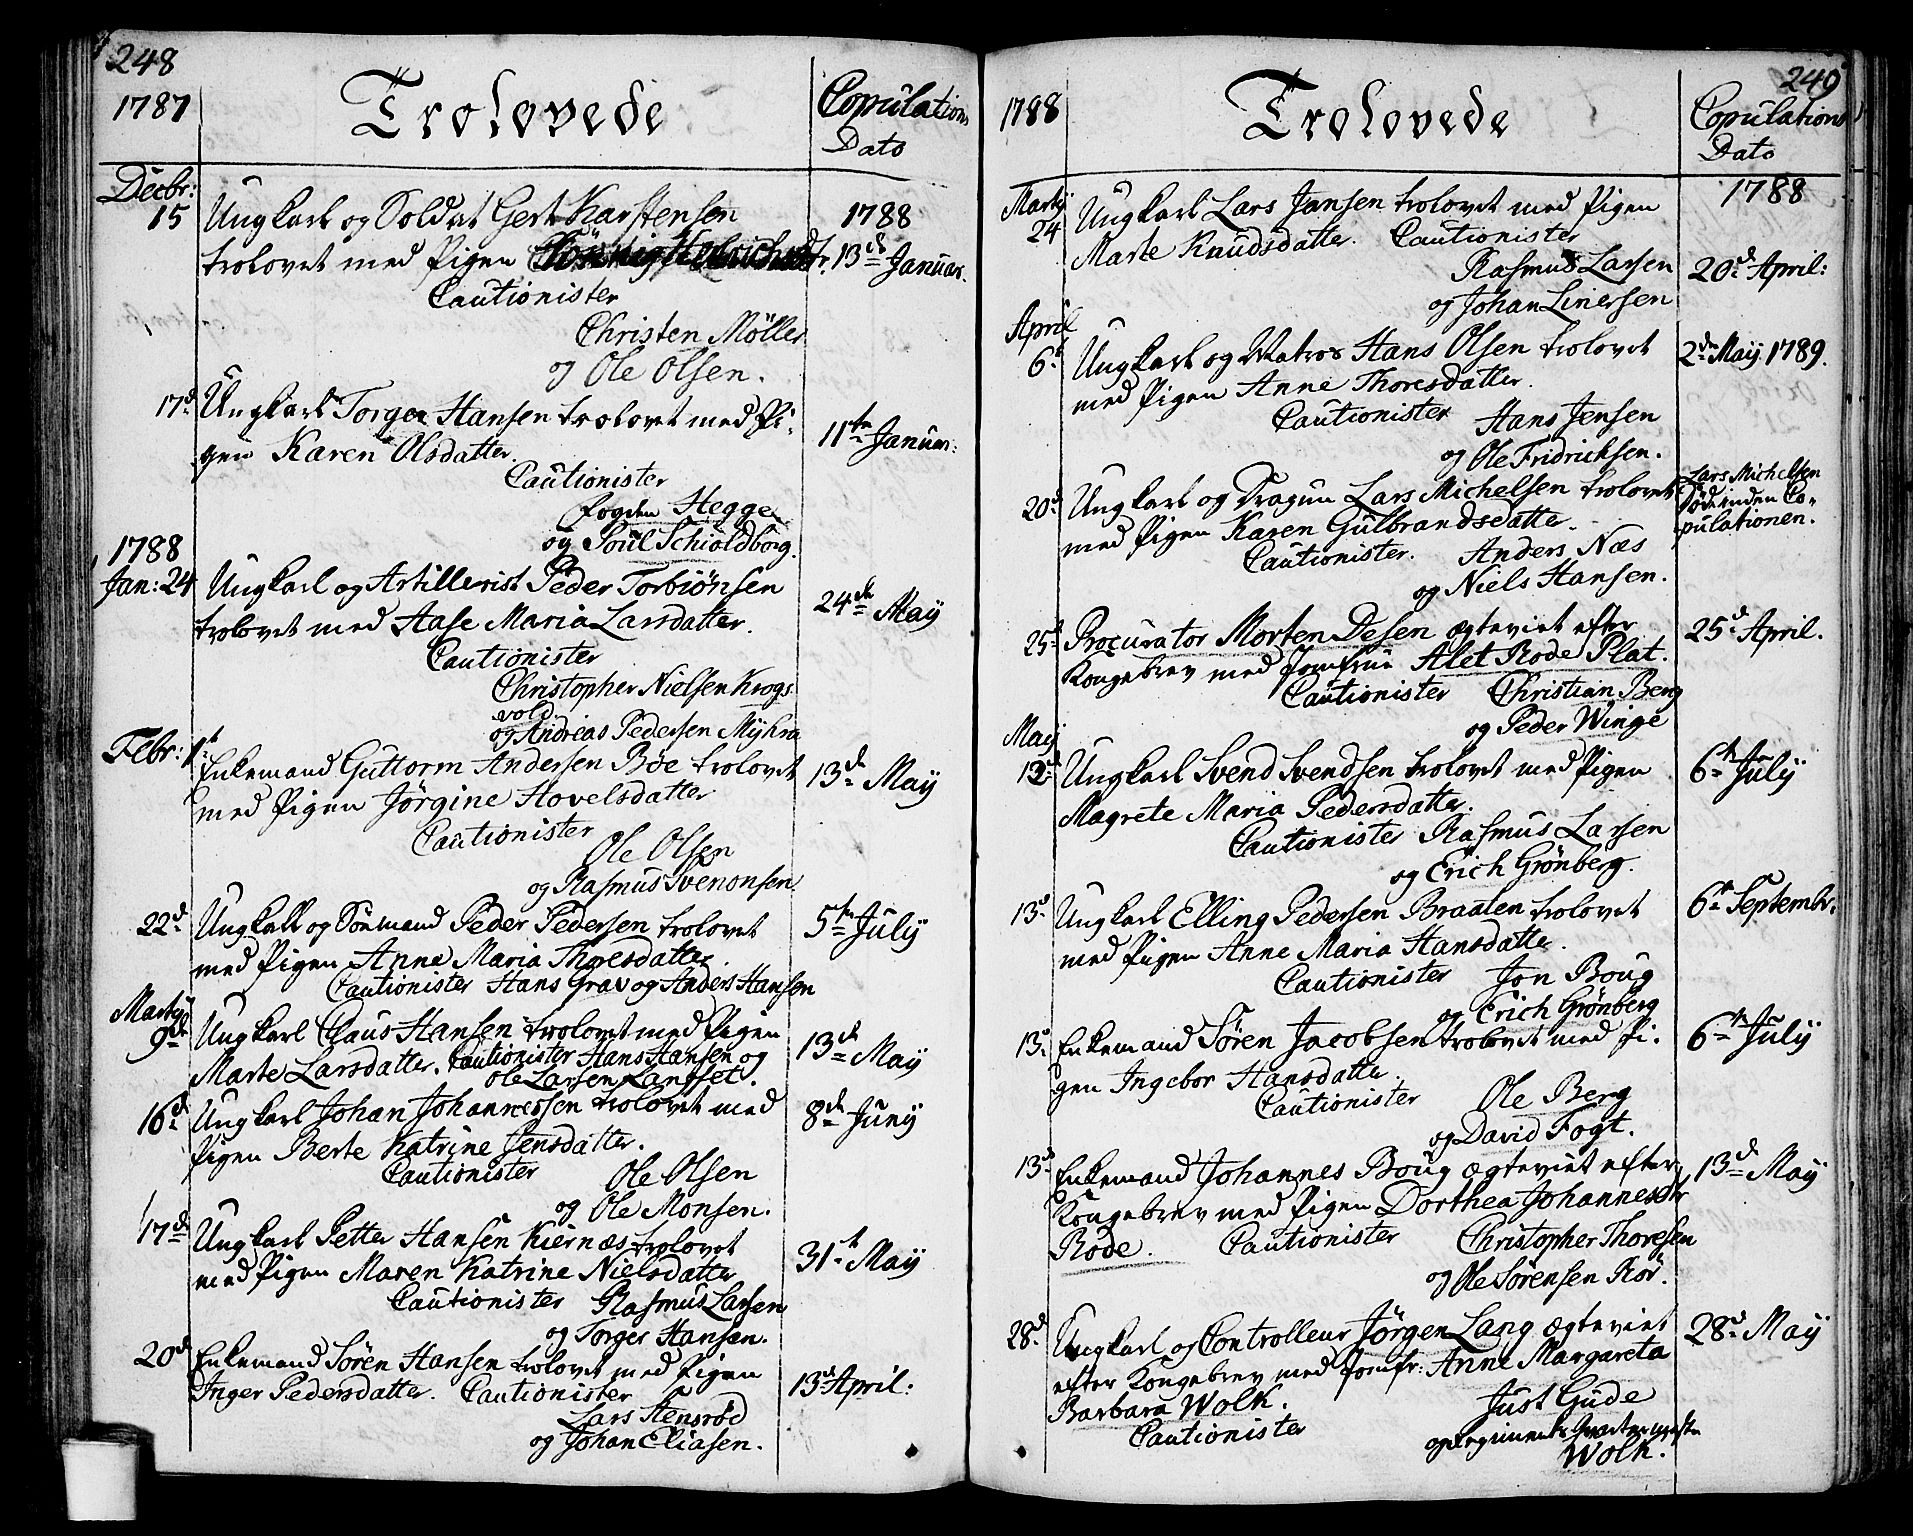 248
1787
Trolovede
Copulations
Dato
Decbr:
15 Ungkarl og Soldat Gert Karstensen
1788
trolovet med Pigen
13d Januar.
Cautionister
Christen Möller
og Ole Olsen.
17d Ungkarl Torger Hansen trolovet med Pi-
gen Karen Olsdatter.
11te Januar:
Cautionister
fogden Hegge
og Poul Schioldborg.
1788
Jan: 24 Ungkarl og Artillerist Peder Torbiörnsen
trolovet med Aase Maria Larsdatter.
24de May
Cautionister
Christopher Nielsen Krogs
vold
og Andreas Pedersen Myhra
Febr: 1t
Enkemand Guttorm Andersen Böe trolovet
med Pigen Jörgine Hovelsdatter
13de May
Cautionister
Ole Olsen
og Rasmus Svenonsen.
22d Ungkarl og Sömand Peder Pedersen trolovet
med Pigen Anne Maria Thoresdatter.
5te July
Cautionister Hans Grav og Anders Hansen
Martij
9de Ungkarl Claus Hansen trolovet med Pigen
Marte Larsdatter. Cautionister Hans Hansen og
Ole Larsen Langset.
13de May
16d Ungkarl Johan Johannessen trolovet med
Pigen Berte Katrine Jensdatter.
8de Juny
Cautionister
Ole Olsen
og Ole Monsen.
17de Ungkarl Petter Hansen Kiernæs trolovet
med Pigen Maren Katrine Nielsdatter
31t May
Cautionister Rasmus Larsen
og Torger Hansen.
20d Enkemand Sören Hansen trolovet med Pigen
Inger Pedersdatter. Cautionister
13d April:
Lars Stensröd
og Johan Eliasen.
249
1788
Trolovede
Copulations
Dato
Martij
24 Ungkarl Lars Jansen trolovet med Pigen
1788
Marte Knudsdatter. Cautionister
Rasmus Larsen
20d April:
og Johan Linersen
April
6t Ungkarl og Matros Hans Olsen trolovet
2de May. 1789.
med Pigen Anne Thoresdatter.
Cautionister Hans Jensen
og Ole Fridrichsen.
20d Ungkarl og Dragun Lars Michelsen trolovet
med Pigen Karen Gulbrandsdatter.
Lars Michelsen
döde inden Co-
pulationen.
Cautionister. Anders Næs
og Niels Hansen.
25d Procurator Morten Desen ægteviet efter
25d April.
Kongebrev med Jomfrue Alet Rode Plat.
Cautionister Christian Berg
og Peder Winge
May
12d Ungkarl Svend Svendsen trolovet med Pigen
6te July
Magrete Maria Pedersdatter.
Cautionister Rasmus Larsen
og Erich Grönberg.
13d Ungkarl Elling Pedersen Braaten trolovet
6te Septembr:
med Pigen Anne Maria Hansdatter.
Cautionister Jon Boug
og Erich Grönberg
13d Enkemand Sören Jacobsen trolovet med Pi-
6te July
gen Ingebor Hansdatter.
Cautionister Ole Berg
og David Fogt.
13d Enkemand Johannes Boug ægteviet efter
13de May
Kongebrev med Pigen Dorthea Johannesdtr
Rode. Cautionister Christopher Thoresen
og Ole Sörensen Rör.
28d Ungkarl og Controlleur Jörgen Lang ægteviet
28d May
efter Kongebrev med Jomfr: Anne Margareta
Barbara Wolk. Just Gude
Cautionister og Regiments Qvarteermester
Wolk.